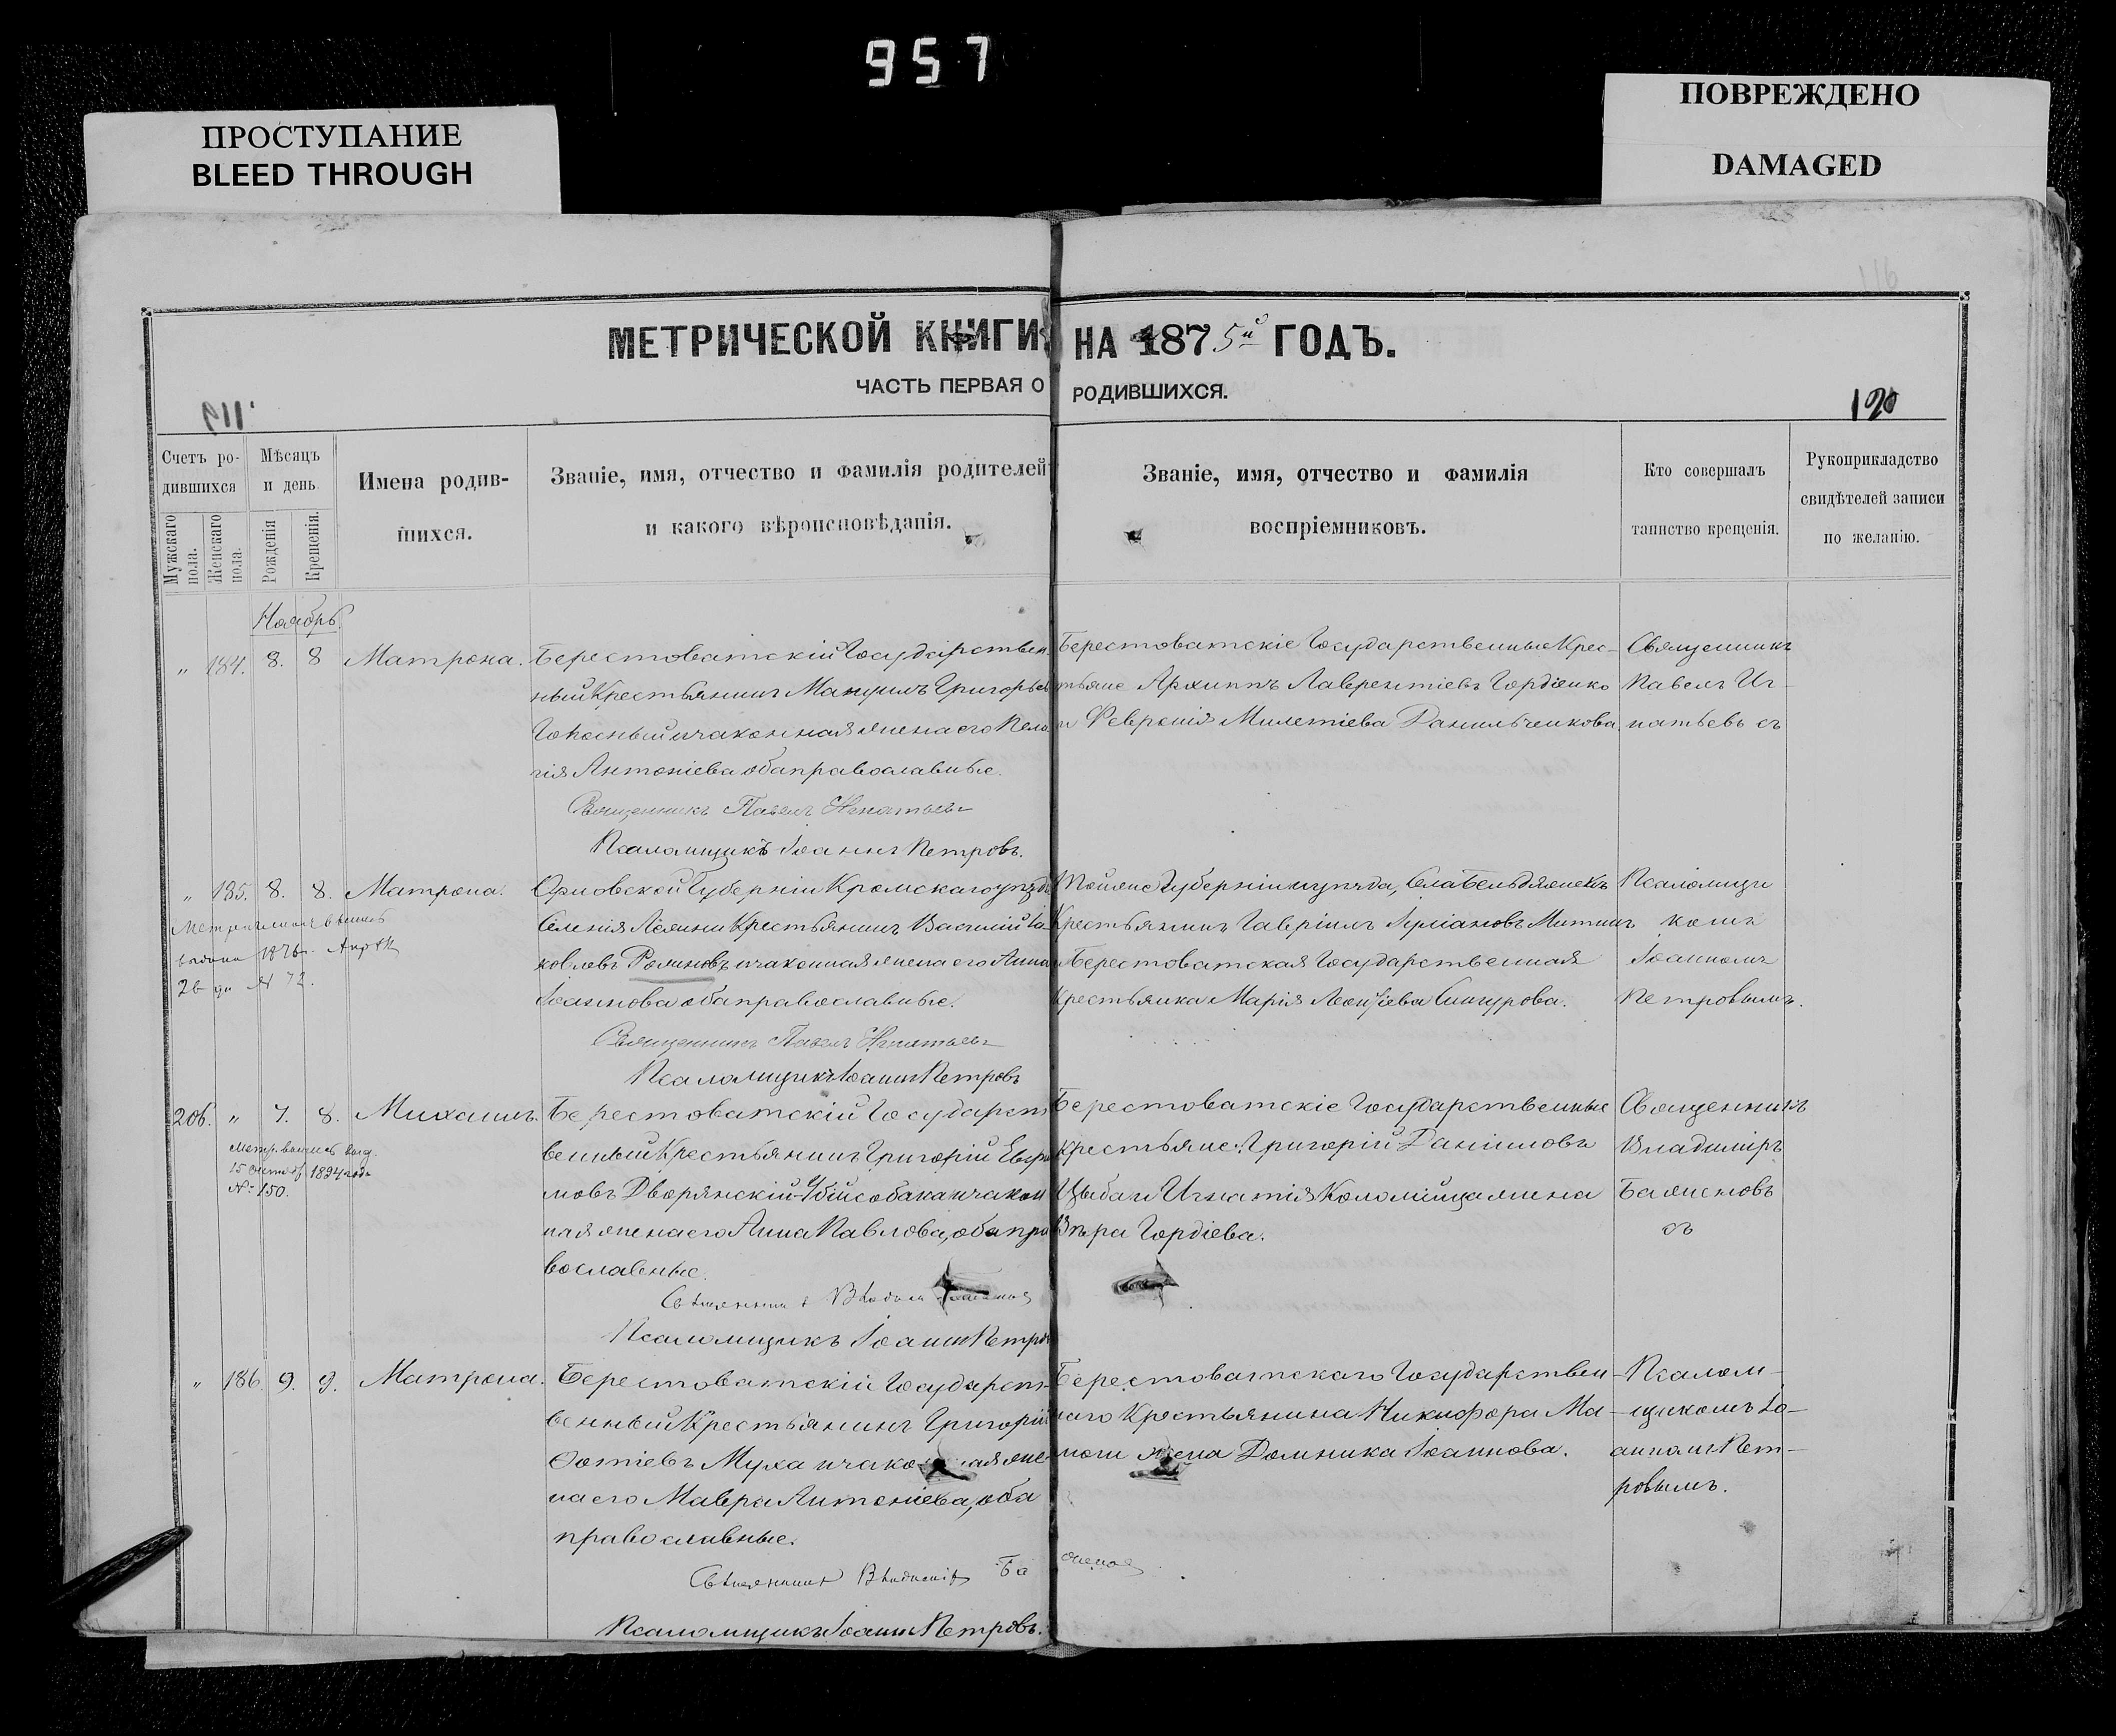 957
ПРОСТУПАНИЕ
BLEED THROUGH
ПОВРЕЖДЕНО
DAMAGED
МЕТРИЧЕСКОЙ КНИГИ НА 1875й ГОДЪ.
ЧАСТЬ ПЕРВАЯ О РОДИВШИХСЯ.
120
Счетъ ро-
дившихся
Мужскаго пола.
Женскаго пола.
Мѣсяцъ
и день.
Рожденія
Крещенія.
Имена родив-
шихся.
Званіе, имя, отчество и фамилія родителей
и какого вѣроисповѣданія.
Званіе, имя, отчество и фамилія
воспріемниковъ.
Кто совершалъ
таинство крещенія.
Рукоприкладство
свидѣтелей записи
по желанію.
Ноябрь.
„ 184. 8. 8 Матрона.
Берестоватскій Государствен
ный Крестьянинъ Мануилъ Григорьев
и законная жена его Пела
гія Антоніева оба православные.
Священникъ Павелъ Игнатьевъ
Псаломщикъ Іоаннъ Петровъ.
Берестоватскіе Государственные Крес-
тьяне Архиппъ Лаврентіевъ Гордіенко
и Февронія Милетіева Данильченкова.
Священникъ
Павелъ Иг-
натьевъ съ
„ 185. 8. 8. Матрона.
1876 Апр
№ 72.
Орловской Губерніи Кромскаго уѣзда
Селенія Крестьянинъ Василій Іа-
ковлевъ Роминовъ и законная жена его Анна
Іоаннова оба православные.
Священникъ Павелъ Игнатьевъ
Псаломщикъ Іоаннъ Петровъ
Той же Губерніи и уѣзда,
Крестьянинъ Гавріилъ Митинъ
и Берестоватская Государственная
Крестьянка Марія Леонтіева Снигурова.
Псаломщи
комъ
Іоанномъ
Петровымъ.
206. „ 7. 8. Михаилъ.
Метр. выпись выд.
15 1894 года
№ 150.
Берестоватскій Государст
венный Крестьянинъ Григорій Евфи
мовъ Дворянскій-Убійсобака и закон
ная жена его Анна Павлова, оба пра
вославные.
Священникъ
Псаломщикъ Іоаннъ Петров
Берестоватскіе Государственные
Крестьяне: Григорій Даніиловъ
Цыба и Игнатія Коломійца жена
Вѣра Гордіева.
Священникъ
Владиміръ
Баженовъ
съ
„ 186 9. 9. Матрона.
Берестоватскій Государст-
венный Крестьянинъ Григорій
Фотіевъ Муха и законная же-
на его Мавра Антоніева, оба
православные.
Священникъ Владиміръ Баженовъ
Псаломщикъ Іоаннъ Петровъ.
Берестоватскаго Государствен-
наго Крестьянина Никифора Ма-
жена Домника Іоаннова.
Псалом-
щикомъ Іо-
анномъ Пет-
ровымъ.